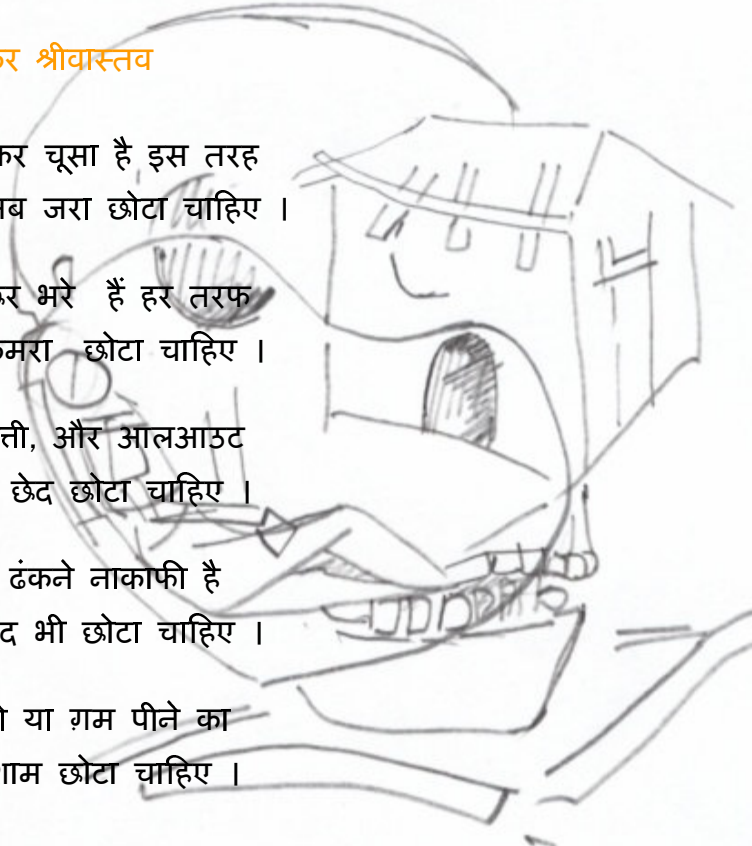 श्रीवास्तव
कर चूसा है इस तरह
जरा छोटा चाहिए ।
भरे हैं हर तरफ
कमरा छोटा चाहिए ।
त्ती, और आलआउट
छेद छोटा चाहिए ।
ढंकने नाकाफी है
द भी छोटा चाहिए ।
या ग़म पीने का
छोटा चाहिए ।